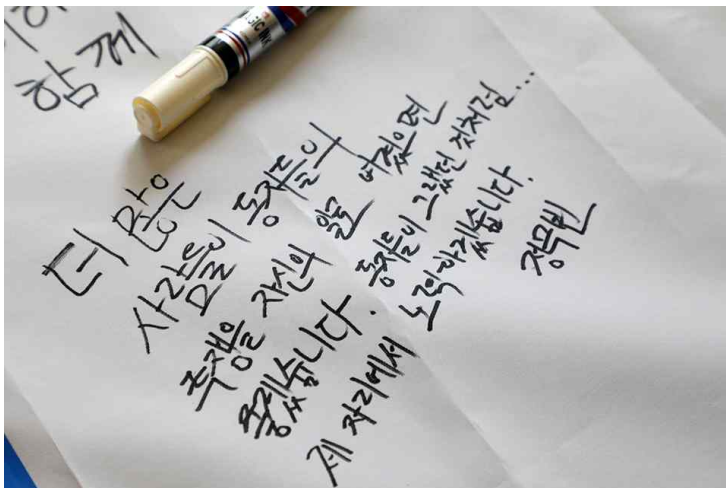 함께
MAGIC INK
더 많은
사람들이 동지들의
투쟁을 자신의 일로 여겼으면
좋겠습니다. 동지들이 그랬던 것처럼...
제 자리에서 노력하겠습니다.